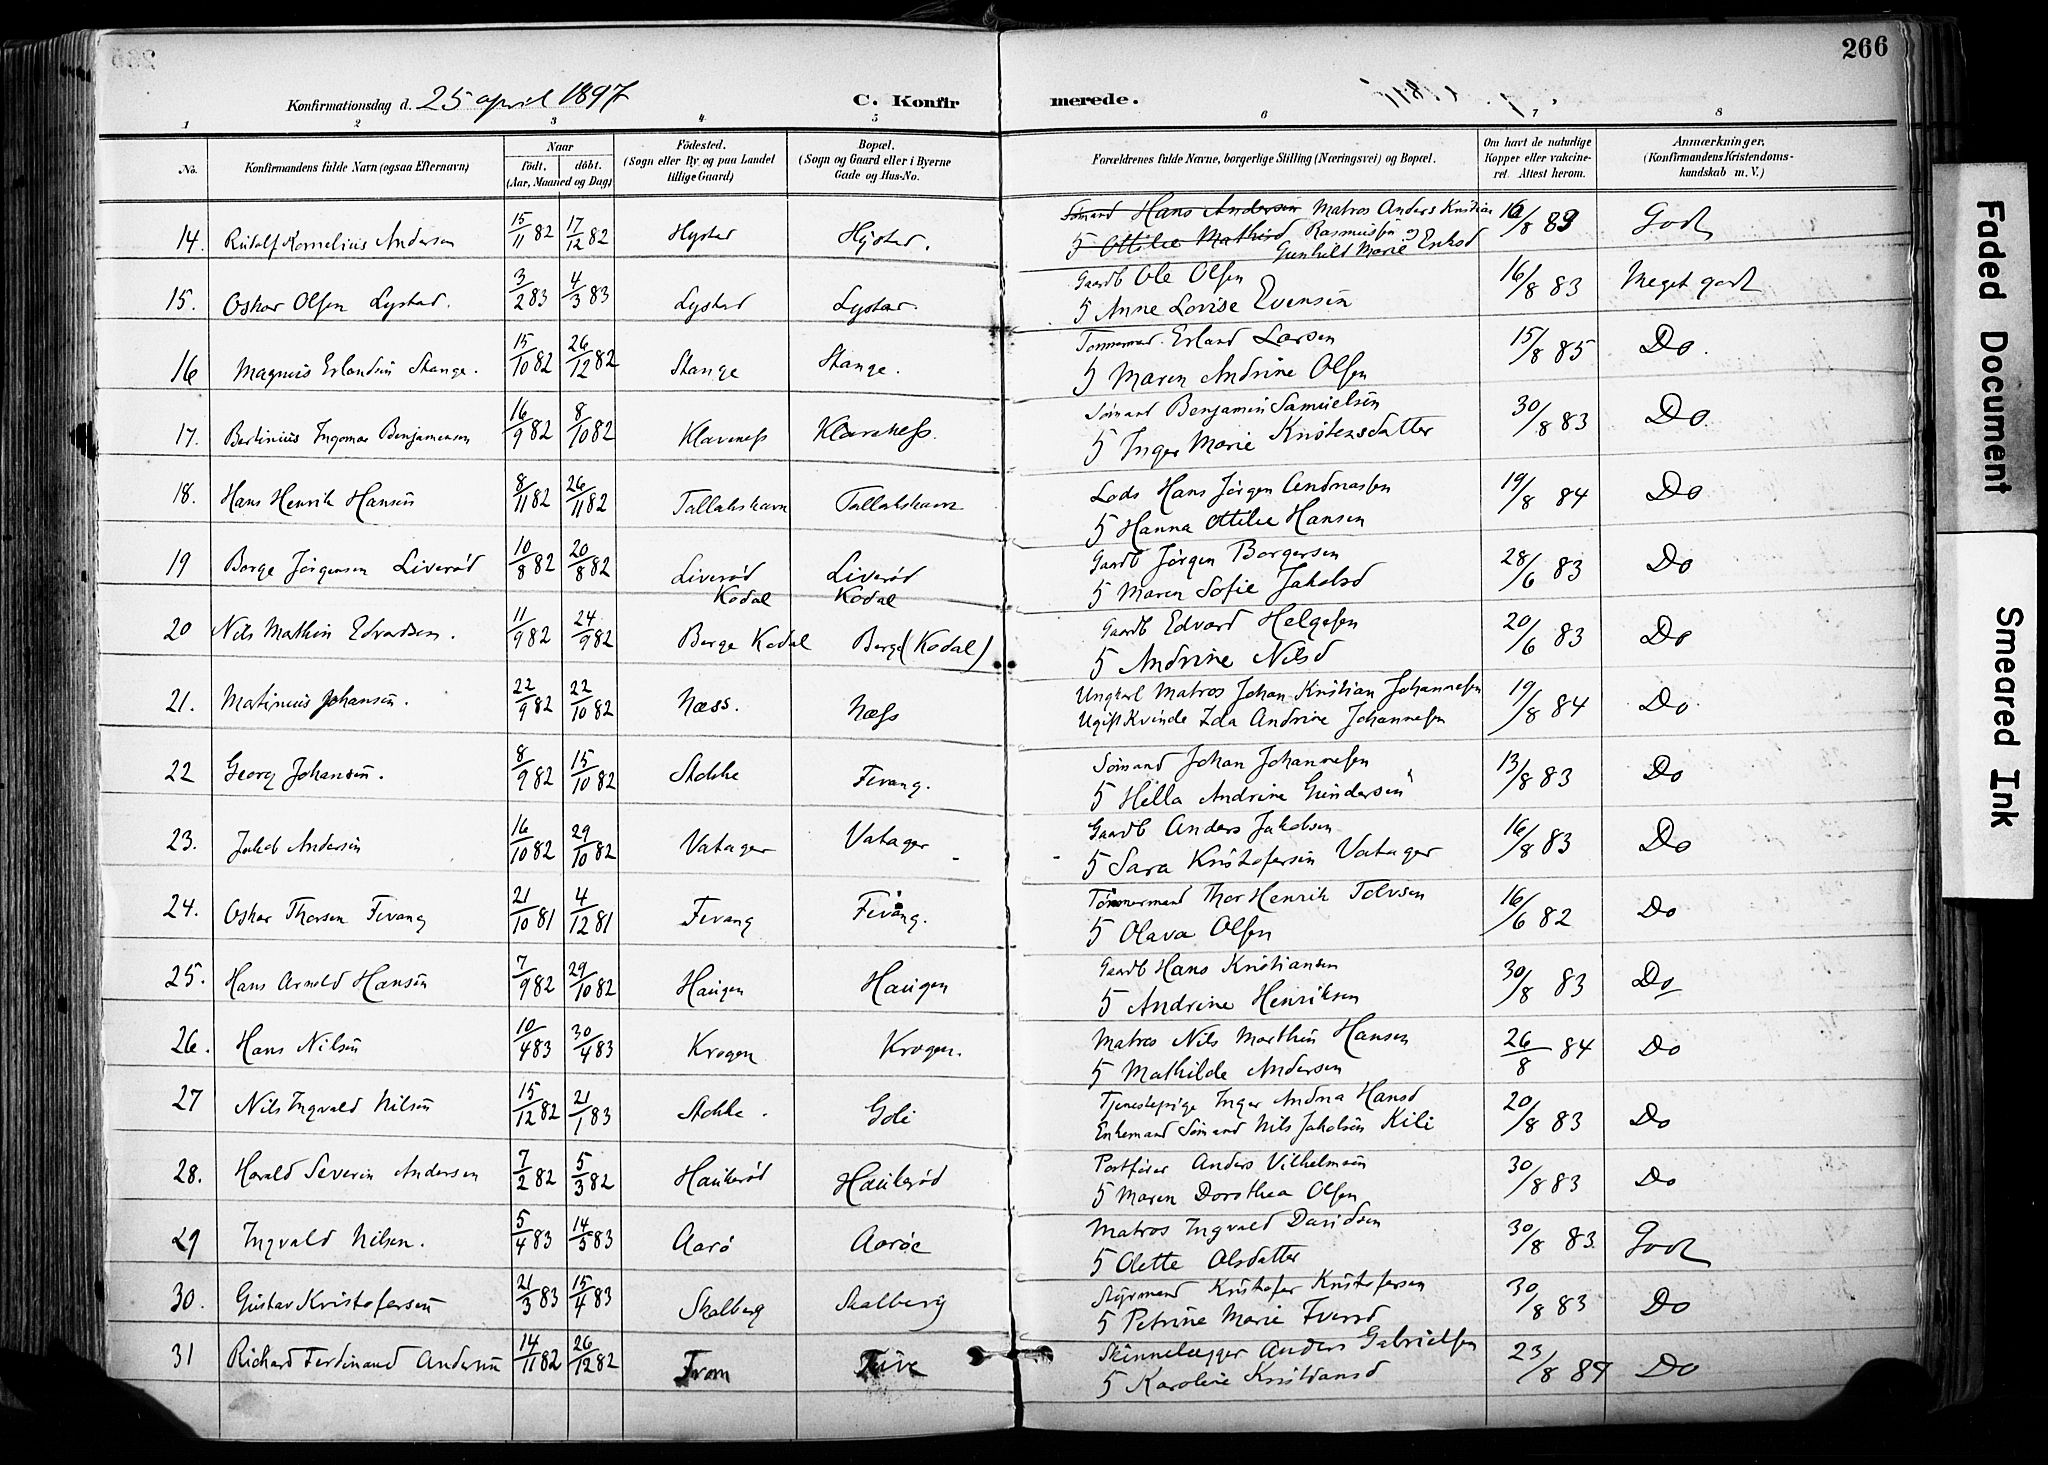 266
Konfirmationsdag d. 25 april 1897 C. Konfirmerede.
1 2 3 4 5 6 7 8
No. Konfirmandens fulde Navn (ogsaa Efternavn) Naar Født. døbt. (Aar, Maaned og Dag) Fødested. (Sogn eller By og paa Landet tillige Gaard) Bopæl. (Sogn og Gaard eller i Byerne Gade og Hus-No. Forældrenes fulde Navne, borgerlige Stilling (Næringsvei) og Bopæl. Om havt de naturlige Kopper eller vakcineret. Attest herom. Anmærkninger, (Konfirmandens Kristendomskundskab m. V.)
14. Rudolf Kornelius Andersen 15/11 82 17/12 82 Hystad Hystad. Sømand Hans Andersen Matros Anders Kristian 16/8 83 Godt
5 Ottilie Mathisd Rasmussen og Gunhild Marie Enksd
15. Oskar Olsen Lystad. 3/2 83 4/3 83 Lystad Lystad. Gaardb Ole Olsen 16/8 83 Meget godt
5 Anne Lovise Evensen
16 Magnus Erlandsen Stange. 15/10 82 26/12 82 Stange Stange. Tømmermd. Erland Larsen 15/8 85 Do.
5 Maren Andrine Olsen
17. Bertinius Ingomar Benjamensen 16/9 82 8/10 82 Klavness Klavness. Sømand Benjamin Samuelsen 30/8 83 Do.
5 Inger Marie Kristensdatter
18. Hans Henrik Hansen 8/11 82 26/11 82 Tallakshavn Tallakshavn Lods Hans Jørgen Andreassen 19/8 84 Do
5 Hanna Ottilie Hansen
19 Borge Jörgensen Liverød 10/8 82 20/8 82 Liverød Kodal Liverød Kodal Gaardb Jørgen Borgersen 28/6 83 Do
5 Maren Sofie Jakobsd
20 Nils Mathin Edvardsen. 11/9 82 24/9 82 Berge Kodal Berge (Kodal) Gaardb Edvard Helgesen 20/6 83 Do
5 Andrine Nilsd
21. Martinius Johansen. 22/9 82 22/10 82 Næss. Næss Ungkarl Matros Johan Kristian Johannesen 19/8 84 Do.
Ugift Kvinde Ida Andrine Johannesen
22 Georg Johansen. 8/9 82 15/10 82 Stokke Fevang. Sømand Johan Johannesen 13/8 83 Do
5 Hella Andrine Gundersen
23. Jakob Andersen 16/10 82 29/10 82 Vatager Vatager Gaardb Anders Jakobsen 16/8 83 Do
5 Sara Kristofersen Vatager
24. Oskar Thorsen Fevang 21/10 81 4/12 81 Fevang Fevang. Tömmermand Thor Henrik Tolvsen 16/6 82 Do
5 Olava Olsen
25. Hans Arnold Hansen 7/9 82 29/10 82 Haugen Haugen Gaardb Hans Kristiansen 30/8 83 Do
5 Andrine Henriksen
26. Hans Nilsen 10/4 83 30/4 83 Krogen Krogen. Matros Nils Marthin Hansen 26/8 84 Do
5 Mathilde Andersen
27 Nils Ingvald Nilsen 15/12 82 21/1 83 Stokke. Goli Tjenestepige Inger Andrea Hansd 20/8 83 Do
Enkemand Sømand Nils Jakobsen Kili
28. Harald Severin Andersen 7/2 82 5/3 82 Haukerød Haukerød Portfører Anders Vilhelmsen 30/8 83 Do
5 Maren Dorothea Olsen
29 Ingvald Nilsen. 5/4 83 14/5 83 Aarø Aarøe Matros Ingvald Davidsen 30/8 83 Godt
5 Olette Olsdatter
30. Gustav Kristofersen 21/3 83 15/4 83 Skalberg Skalberg Styrmand Kristofer Kristofersen 30/8 83 Do
5 Petrine Marie Iversd
31 Richard Ferdinand Andersen 14/11 82 26/12 82 Fram Anders Gabrielsen 23/8 84 Do
5 Karoline Kristiansd
Faded Document
Smeared Ink